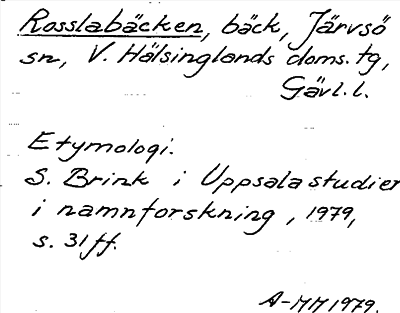 Rosslabäcken, bäck, Järvsö
sn, V. Hälsinglands doms. tg,
Gävl. l.
Etymologi.
S. Brink i Uppsalastudier
i namnforskning, 1979,
s. 31 ff.
A-MM 1979.